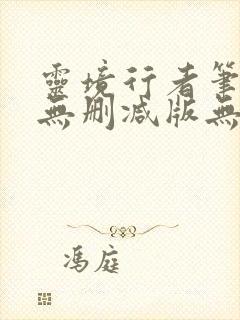 靈境行者筆
無刪减版無
馮庭